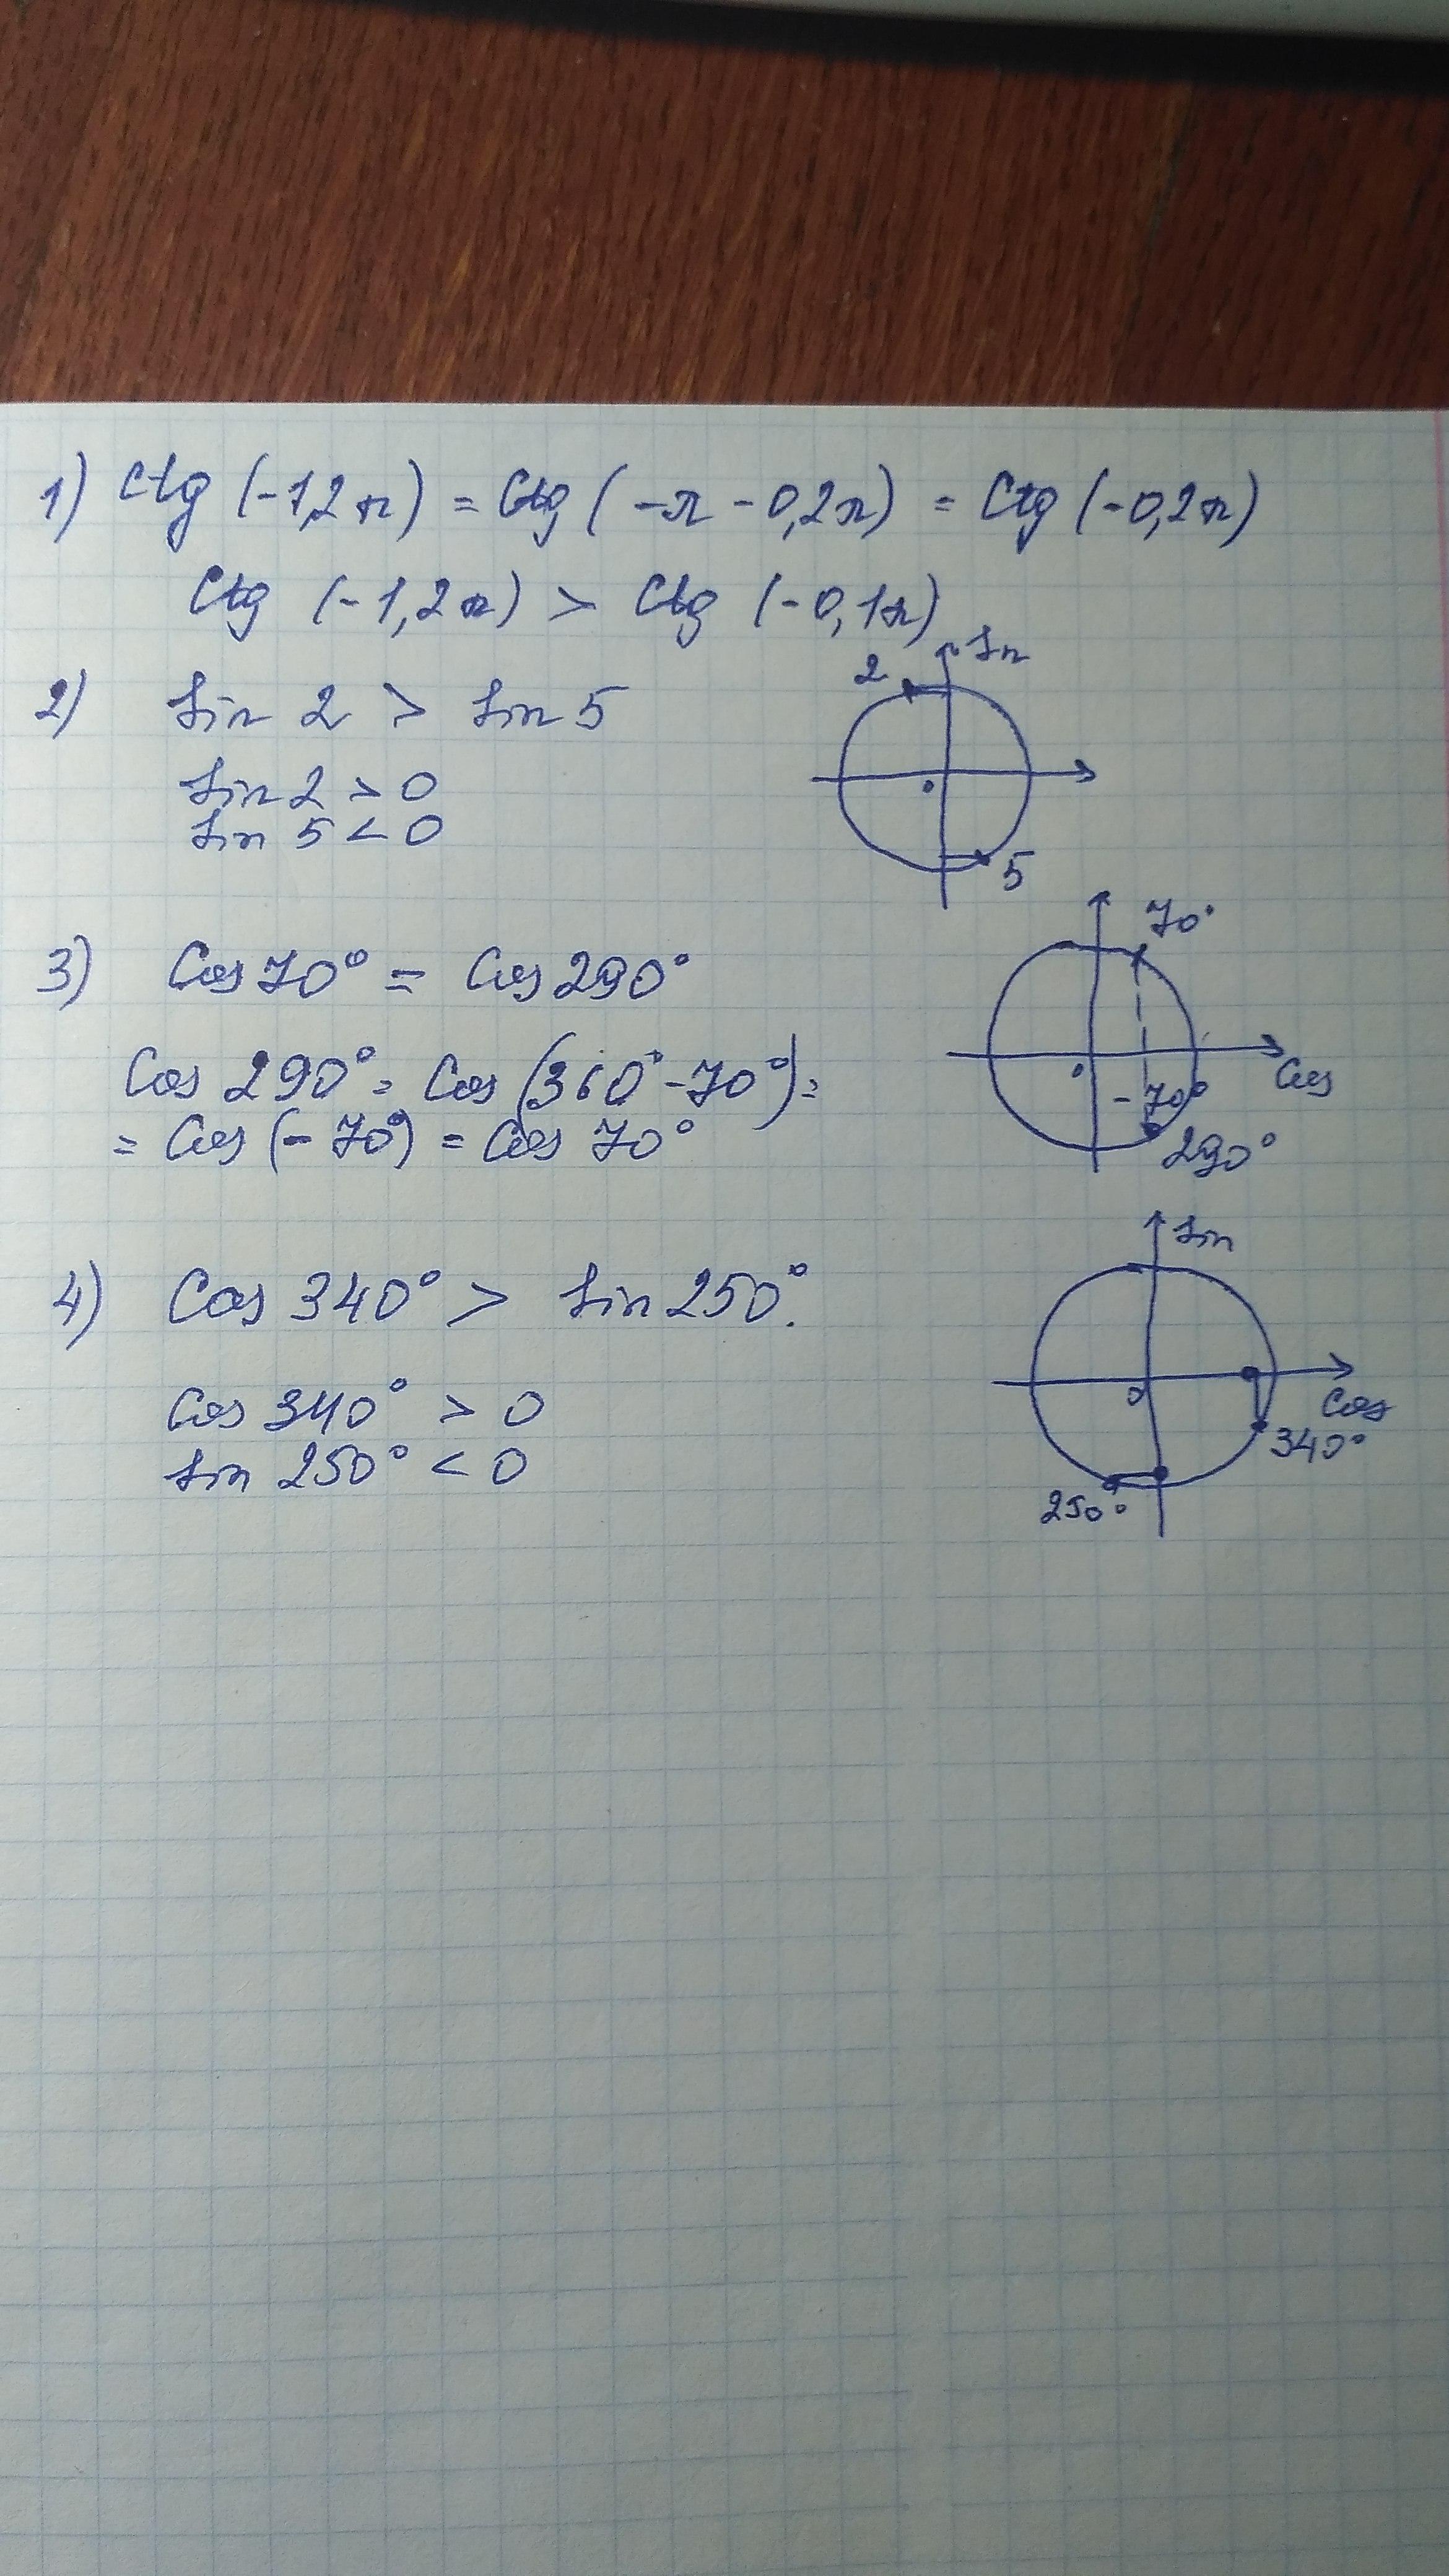 1) Ctg (-1,2π) = Ctg (-π - 0,2π) = Ctg (-0,2π)
Ctg (-1,2π) > Ctg (-0,1π)
2) Sin 2 > Sin 5
Sin 2 > 0
Sin 5 < 0
Sin
2
0
5
3) Cos 70° = Cos 290°
Cos 290° = Cos (360° - 70°) =
= Cos (- 70°) = Cos 70°
70°
0
Cos
-70°
290°
4) Cos 340° > Sin 250°.
Cos 340° > 0
Sin 250° < 0
Sin
0
Cos
340°
250°